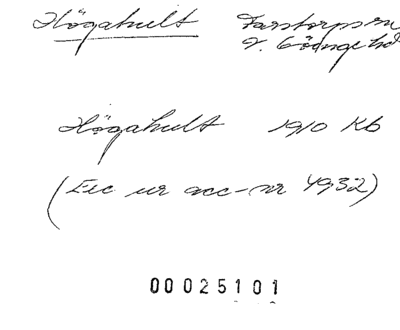 Högahult Farstorps sn
V. Göinge hd
Högahult 1910 Kb
(Exc ur acc-nr 4932)
00025101